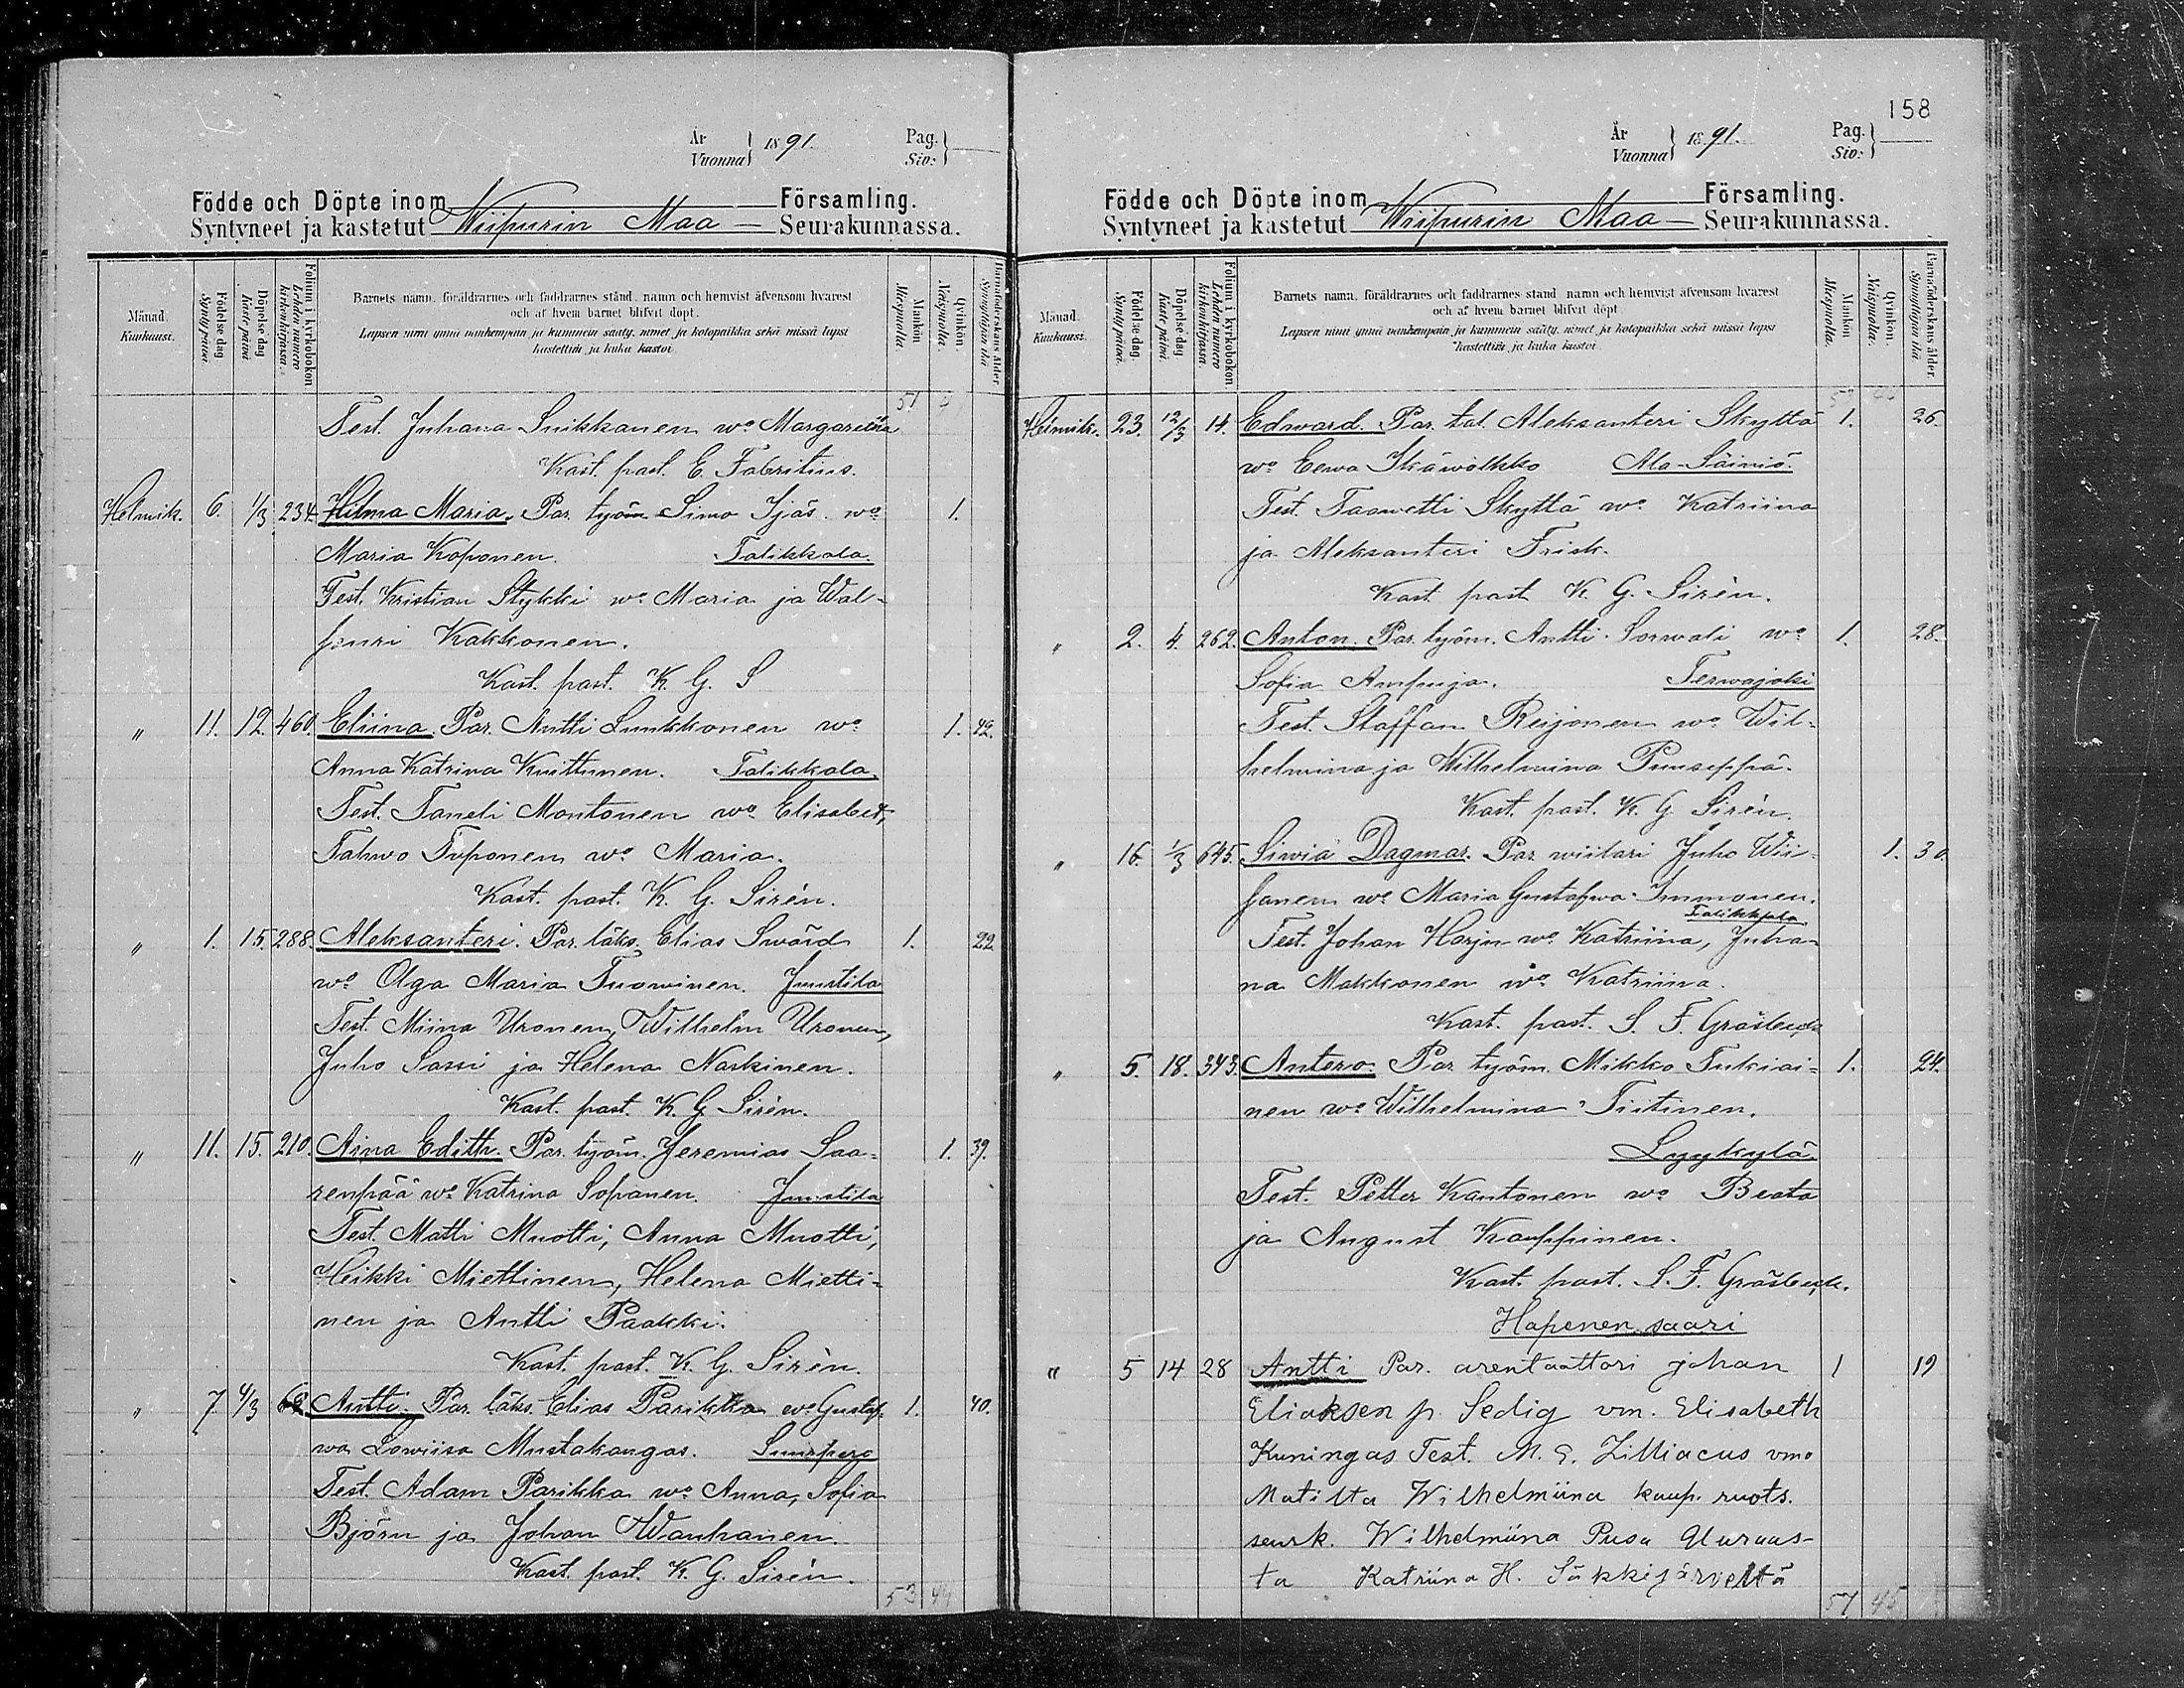 År
Vuonna } 1891.
Pag.
Siv:
Födde och Döpte inom Församling.
Syntyneet ja kastetut Wiipurin Maa Seurakunnassa.
Månad.
Kuukausi.
Födelse dag
Synty päivä.
Döpelse dag
Kaste päivä
Folium i kyrkoboken
Lehden numero kirkonkirjassa.
Barnets namn, föräldrarnes och faddrarnes stånd, namn och hemvist äfvensom hvarest
och af hvem barnet blifvit döpt.
Lapsen nimi ynnä vanhempain ja kummein sääty, nimet ja kotopaikka sekä missä lapsi
kastettiin ja kuka kastoi.
Mankön
Miespuolia.
Qvinkön.
Naispuolia.
Barnaföderskans ålder.
Synnyttäjän ikä
51 4
Test. Juhana Suikkanen wo Margareetta
Kast. past. E. Fabritius.
Helmik. 6. 1/3 234. Hilma Maria. Par. työm. Simo Ijäs. wo 1.
Maria Koponen. Talikkala.
Test. Kristian Stykki wo Maria ja Wal-
funri Kakkonen.
Kast. past. K. G. S
" 11. 12. 460. Eliina. Par. Antti Luukkonen wo 1. 42.
Anna Katrina Kuittunen. Talikkala.
Test. Taneli Montonen wo Elisabet,
Tahwo Toponen wo Maria.
Kast. past. K. G. Sirén.
" 1. 15. 288. Aleksanteri. Par. läks. Elias Swärd 1. 22.
wo Olga Maria Tuowinen. Juustila
Test. Miina Uronen, Wilhelm Uronen,
Juho Sassi ja Helena Naskinen.
Kast. past. K. G. Sirén.
" 11. 15. 210. Aina Edith. Par. työm. Jeremias Saa- 1. 39.
renpää wo Katrina Sopanen. Juustila
Test. Matti Muotti, Anna Muotti,
Heikki Miettinen, Helena Mietti-
nen ja Antti Paakki.
Kast. past. K. G. Sirén.
" 7. 4/3 Antti. Par. läks. Elias Parikka wo Gustaf- 1. 40.
wa Lowiisa Mustakangas. Suurpero
Test. Adam Parikka wo Anna, Sofia
Björn ja Johan Wanhanen.
Kast. past. K. G. Sirén.
53 44
158
År
Vuonna } 1891.
Pag.
Siv:
Födde och Döpte inom Församling.
Syntyneet ja kastetut Wiipurin Maa Seurakunnassa.
Månad.
Kuukausi.
Födelse dag
Synty päivä.
Döpelse dag
Kaste päivä
Folium i kyrkoboken
Lehden numero kirkonkirjassa.
Barnets namn, föräldrarnes och faddrarnes stånd, namn och hemvist äfvensom hvarest
och af hvem barnet blifvit döpt.
Lapsen nimi ynnä vanhempain ja kummein sääty, nimet ja kotopaikka sekä missä lapsi
kastettiin ja kuka kastoi.
Mankön
Miespuolia.
Qvinkön.
Naispuolia.
Barnaföderskans ålder.
Synnyttäjän ikä
Helmik. 23. 12/3 14. Edward. Par. tal. Aleksanteri Skyttä 1. 26.
wo Eewa Ikäwalkko Ala-Säiniö.
Test. Taawetti Skyttä wo Katriina
ja Aleksanteri Frisk.
Kast. past. K. G. Sirén.
" 2. 4. 262. Anton. Par. työm. Antti Sorwali wo 1. 28.
Sofia Ampuja. Terwajoki
Test. Staffan Reijonen wo Wil-
helmina ja Wilhelmina Punseppä.
Kast. past. K. G. Sirén.
" 16. 1/3 645. Siwiä Dagmar. Par. wiilari Juho Wii- 1. 30.
janen wo Maria Gustafwa Immonen.
Talikkala
Test. Johan Harju wo Katriina, Juha-
na Makkonen wo Katriina.
Kast. past. S. F. Gräsbeck
" 5. 18. 343. Antero. Par. työm. Mikko Tukiai- 1. 24.
nen wo Wilhelmina Tiitinen.
Lyykylä.
Test. Petter Kantonen wo Beata
ja August Kauppinen.
Kast. past. S. F. Gräsbeck.
Hapenen saari
" 5 14 28 Antti Par. arentaattori johan 1 19
Eliaksen p. Sedig vm. Elisabeth
Kuningas Test. M. G. Zilliacus vmo
Matilta Wilhelmiina kaup. ruots.
seurk. Wilhelmiina Pusa Uuraas-
ta Katriina H. Säkkijärveltä
57 45